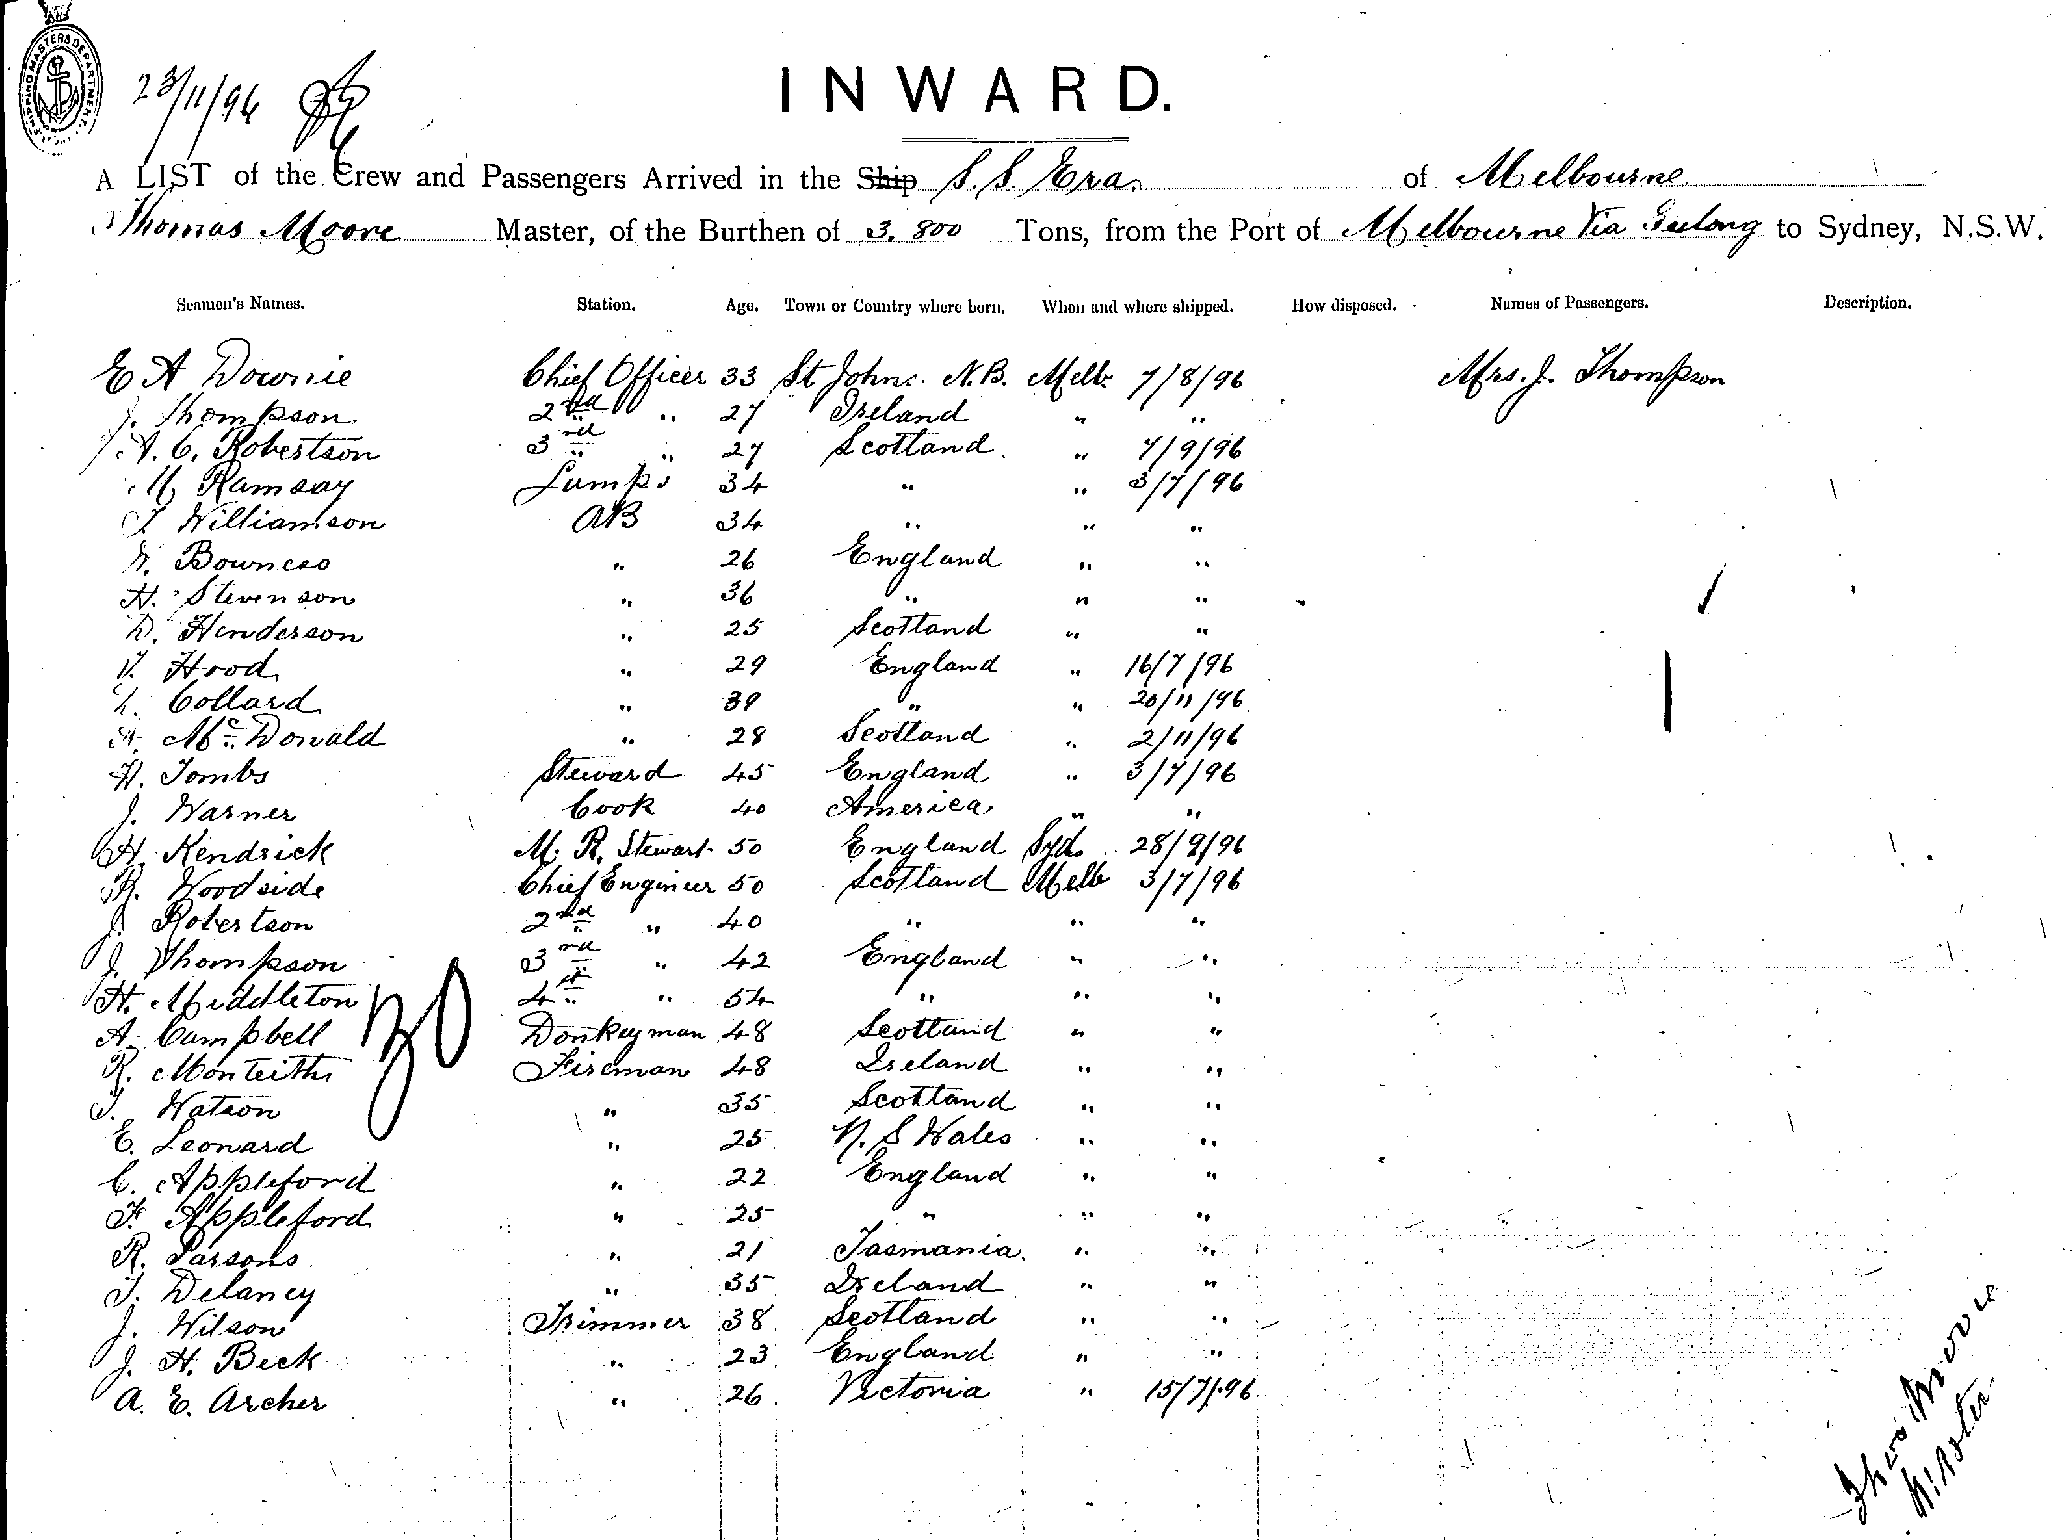 SHIPPING MASTERS DEPARTMENT.
23/11/96
INWARD.
A LIST of the Crew and Passengers Arrived in the Ship S.S. Era. of Melbourne
Thomas Moore Master, of the Burthen of 3.800 Tons, from the Port of Melbourne Via Geelong to Sydney, N.S.W.
Seamen's Names. Station. Age. Town or Country where born. When and where shipped. How disposed. Names of Passengers. Description.
E A Downie Chief Officer 33 St Johns. N.B. Melb. 7/8/96 Mrs. J. Thompson
J. Thompson 2nd " 27 Ireland " "
A. C. Robertson 3rd " 27 Scotland " 7/9/96
M. Ramsay Lamps 34 " " 3/7/96
T. Williamson AB 34 " " "
W. Bowness " 26 England " "
H. Stevenson " 36 " " "
D. Henderson " 25 Scotland " "
Hood " 29 England " 16/7/96
Collard " 39 " " 20/11/96
McDonald " 28 Scotland " 2/11/96
H. Tombs Steward 45 England " 3/7/96
J. Warner Cook 40 America " "
H. Kendrick M. R. Stewart 50 England Syd. 28/9/96
R. Woodside Chief Engineer 50 Scotland Melb 3/7/96
J. Robertson 2nd " 40 " " "
J. Thompson 3rd " 42 England " "
H. Middleton 4th " 54 " " "
A. Campbell Donkeyman 48 Scotland " "
R. Monteith Fireman 48 Ireland " "
T. Watson " 35 Scotland " "
E. Leonard " 25 N. S Wales " "
C. Appleford " 22 England " "
F. Appleford " 25 " " "
R. Parsons " 21 Tasmania " "
T. Delaney " 35 Ireland " "
J. Wilson Trimmer 38 Scotland " "
J. H. Beck " 23 England " "
A. E. Archer " 26 Victoria " 15/7/96
30
Thos Moore
Master